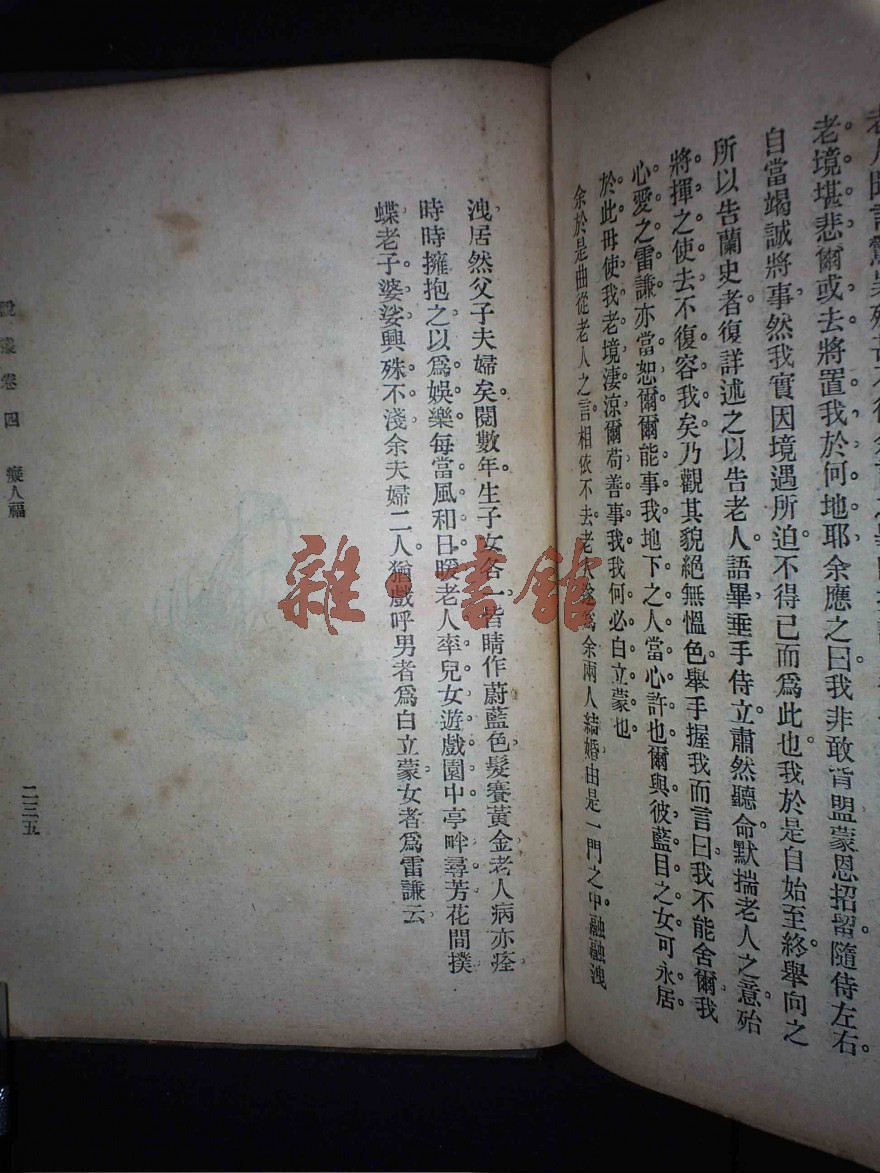 老境堪悲爾或去將置我於何地耶余應之曰我非敢背盟蒙恩招留隨侍左右。
自當竭誠將事然我實因境遇所迫不得已而爲此也我於是自始至終舉向之
所以告蘭史者復詳述之以告老人語畢垂手侍立肅然聽命默揣老人之意殆
將揮之使去不復容我矣乃觀其貌絕無慍色舉手握我而言曰我不能舍爾我
心愛之雷謙亦當恕爾爾能事我地下之人當心許也爾與彼藍目之女可永居
於此毋使我老境淒涼爾苟善事我我何必白立蒙也
余於是曲從老人之言相依不去老人遂爲余兩人結婚由是一門之中融融洩
洩居然父子夫婦矣閱數年生子女各一皆睛作蔚藍色髮賽黃金老人病亦痊
時時擁抱之以爲娛樂每當風和日暖老人率兒女遊戲園中亭畔尋芳花間撲
蝶老子婆娑興殊不淺余夫婦二人猶戲呼男者爲白立蒙女者爲雷謙云
卷四 癡人福
二三五
雜·書館